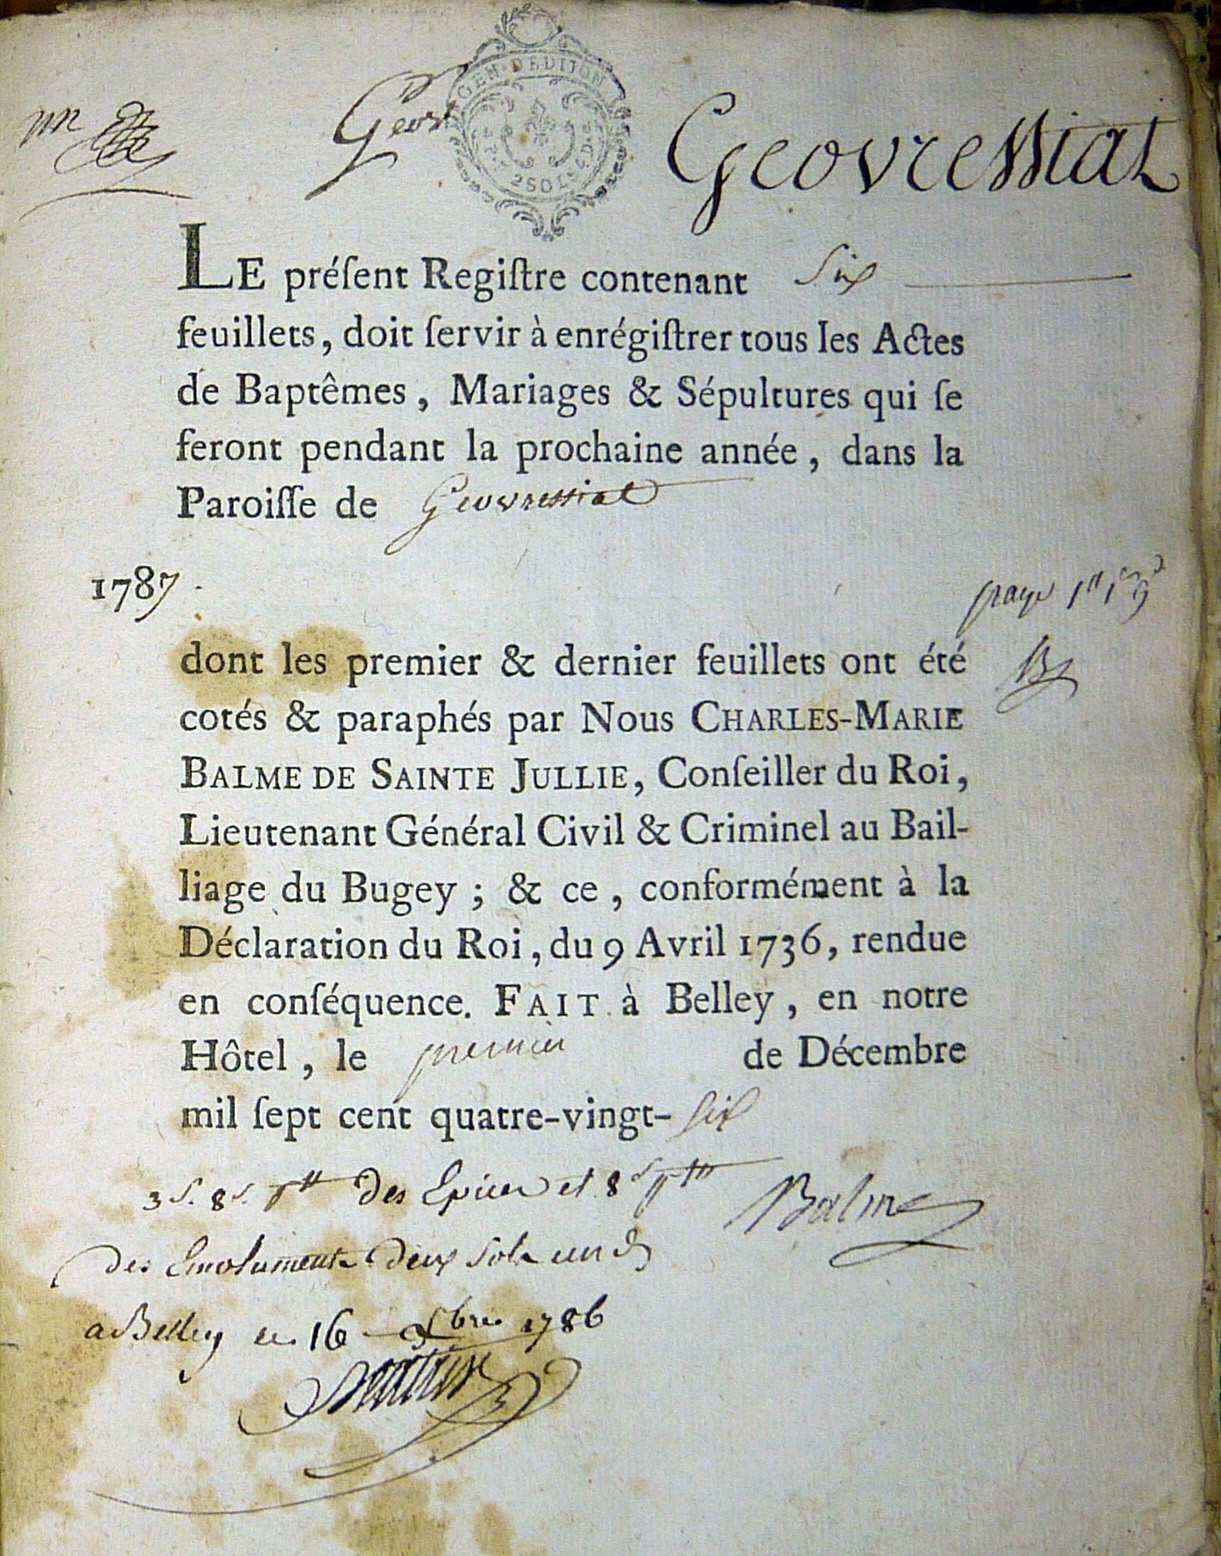 Geovressiat
GEN · DE DIJON
2 SOLS
LE préſent Regiſtre contenant Six
feuillets, doit ſervir à enrégiſtrer tous les Actes
de Baptêmes, Mariages & Sépultures qui ſe
feront pendant la prochaine année, dans la
Paroiſſe de Geovressiat
1787.
dont les premier & dernier feuillets ont été
cotés & paraphés par Nous CHARLES-MARIE
BALME DE SAINTE JULLIE, Conſeiller du Roi,
Lieutenant Général Civil & Criminel au Bail-
liage du Bugey ; & ce, conformément à la
Déclaration du Roi, du 9 Avril 1736, rendue
en conſéquence. FAIT à Belley, en notre
Hôtel, le premier de Décembre
mil ſept cent quatre-vingt-six
3 s. 8 s. des Epices et 8
Balme
des Emoluments deux sols un d
a Belley ce 16 Xbre 1786